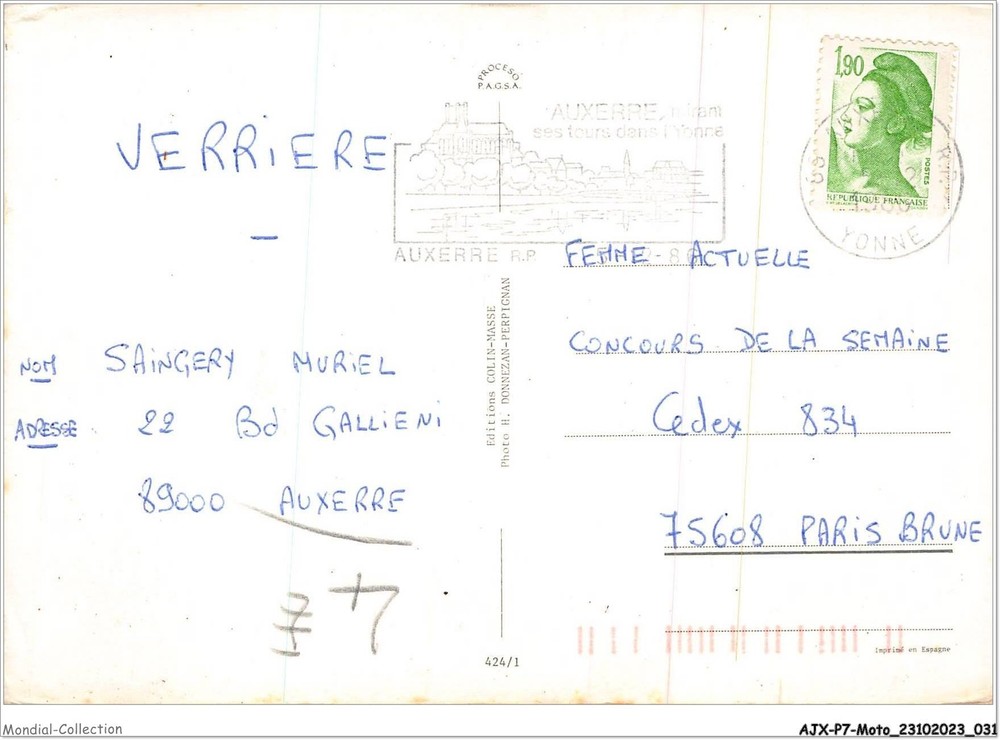 PROCESO
P.A.G.S.A.
AUXERRE, mirant
ses tours dans l'Yonne
AUXERRE R.P.
1,90
POSTES
REPUBLIQUE FRANÇAISE
89
YONNE
VERRIERE
NOM SAINGERY MURIEL
ADRESSE 22 Bd GALLIENI
89000 AUXERRE
Editions COLIN-MASSE
Photo H. DONNEZAN-PERPIGNAN
FEMME ACTUELLE
CONCOURS DE LA SEMAINE
Cedex 834
75608 PARIS BRUNE
424/1
Imprimé en Espagne
Mondial-Collection
AJX-P7-Moto_23102023_031